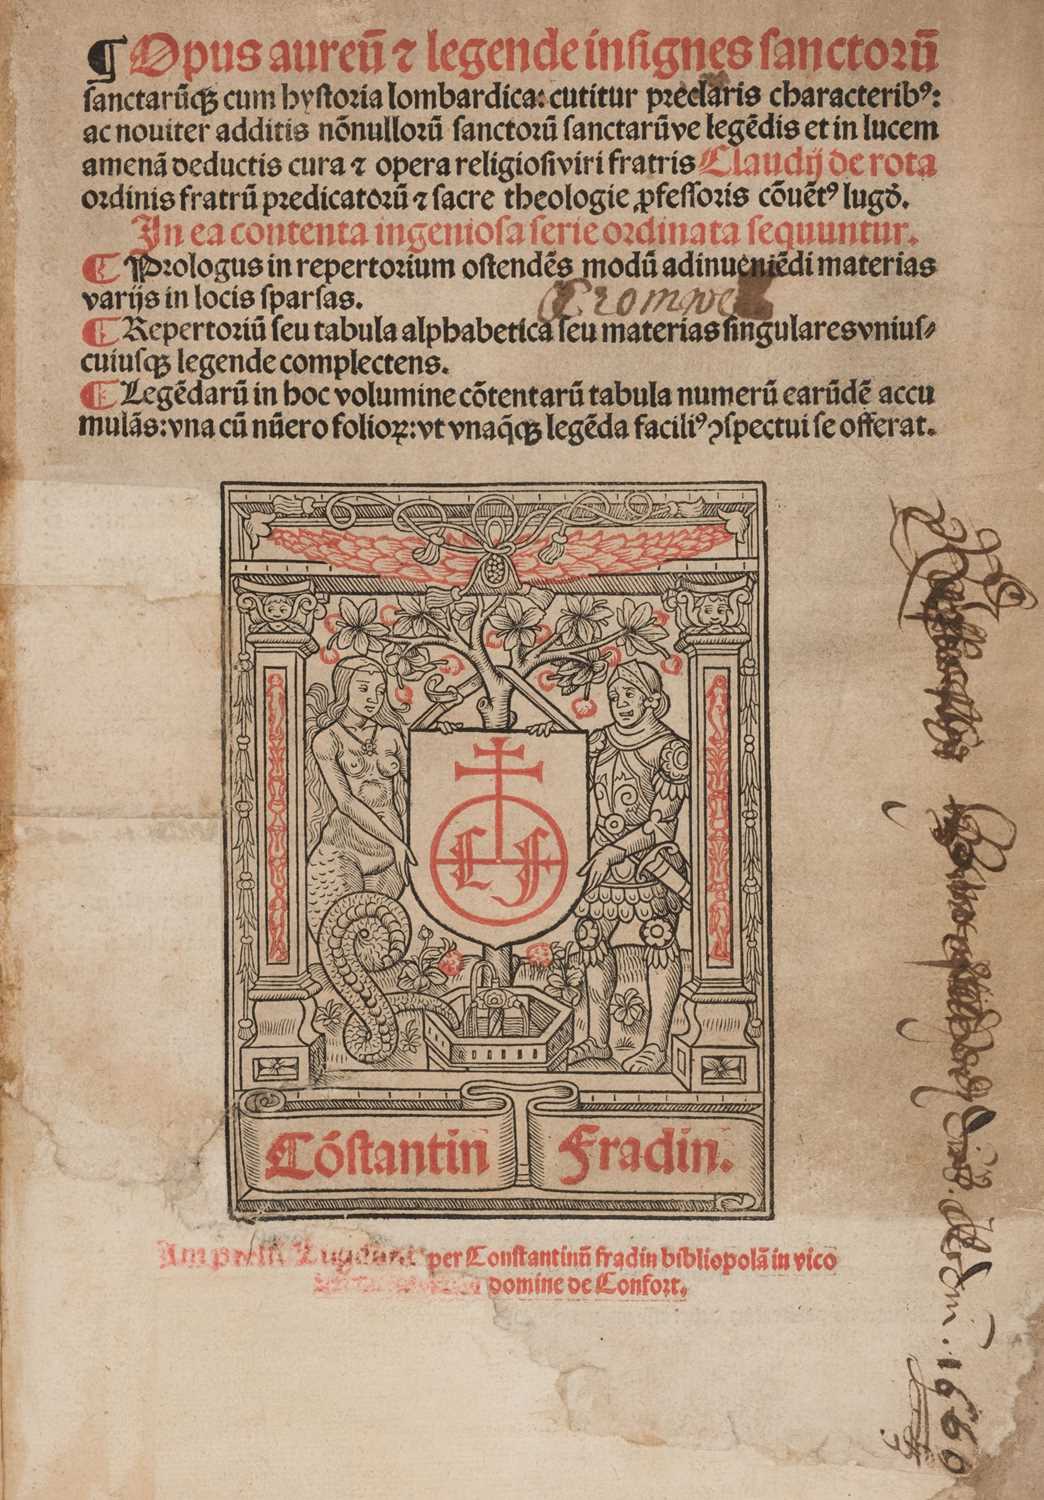 ¶ Opus aureū ⁊ legende insignes sanctorū
sanctarūqꝫ cum hystoria lombardica: cutitur preclaris characteribꝰ:
ac noviter additis nōnullorū sanctorū sanctarūve legēdis et in lucem
amenā deductis cura ⁊ opera religiosi viri fratris Claudij de rota
ordinis fratrū predicatorū ⁊ sacre theologie ꝓfessoris cōuētꝰ lugđ.
In ea contenta ingeniosa serie ordinata sequuntur.
¶ Prologus in repertorium ostendēs modū adinueniēdi materias
varijs in locis sparsas.
Cromwe
¶ Repertoriū seu tabula alphabetica seu materias singulares vnius-
cuiusqꝫ legende complectens.
¶ Legēdarū in hoc volumine cōtentarū tabula numerū earūdē accu
mulās: vna cū nūero folioꝝ: vt vnaq̄qꝫ legēda faciliꝰ ꝯspectui se offerat.
C F
Cōstantin Fradin.
Impressi Lugduni per Constantinū fradin bibliopolā in vico
domine de Confort.
1660